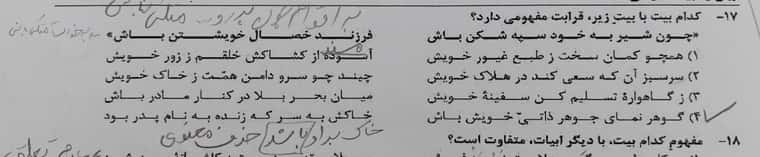 به اقوام
۱۷- کدام بیت با بیت زیر، قرابت مفهومی دارد؟
«چون شیر به خود سپه شکن باش فرزند خصال خویشتن باش»
۱) همچو کمان سخت ز طبع غیور خویش آسوده از کشاکش خلقم ز زور خویش
۲) سرسبز آن که سعی کند در هلاک خویش چیند چو سرو دامن همّت ز خاک خویش
۳) ز گاهوارهٔ تسلیم کن سفینهٔ خویش میان بحر بلا در کنار مادر باش
۴) گوهر نمای جوهر ذاتیّ خویش باش خاکش به سر که زنده به نام پدر بود
خاک بر او باشد حذف معنوی
۱۸- مفهوم کدام بیت، با دیگر ابیات، متفاوت است؟